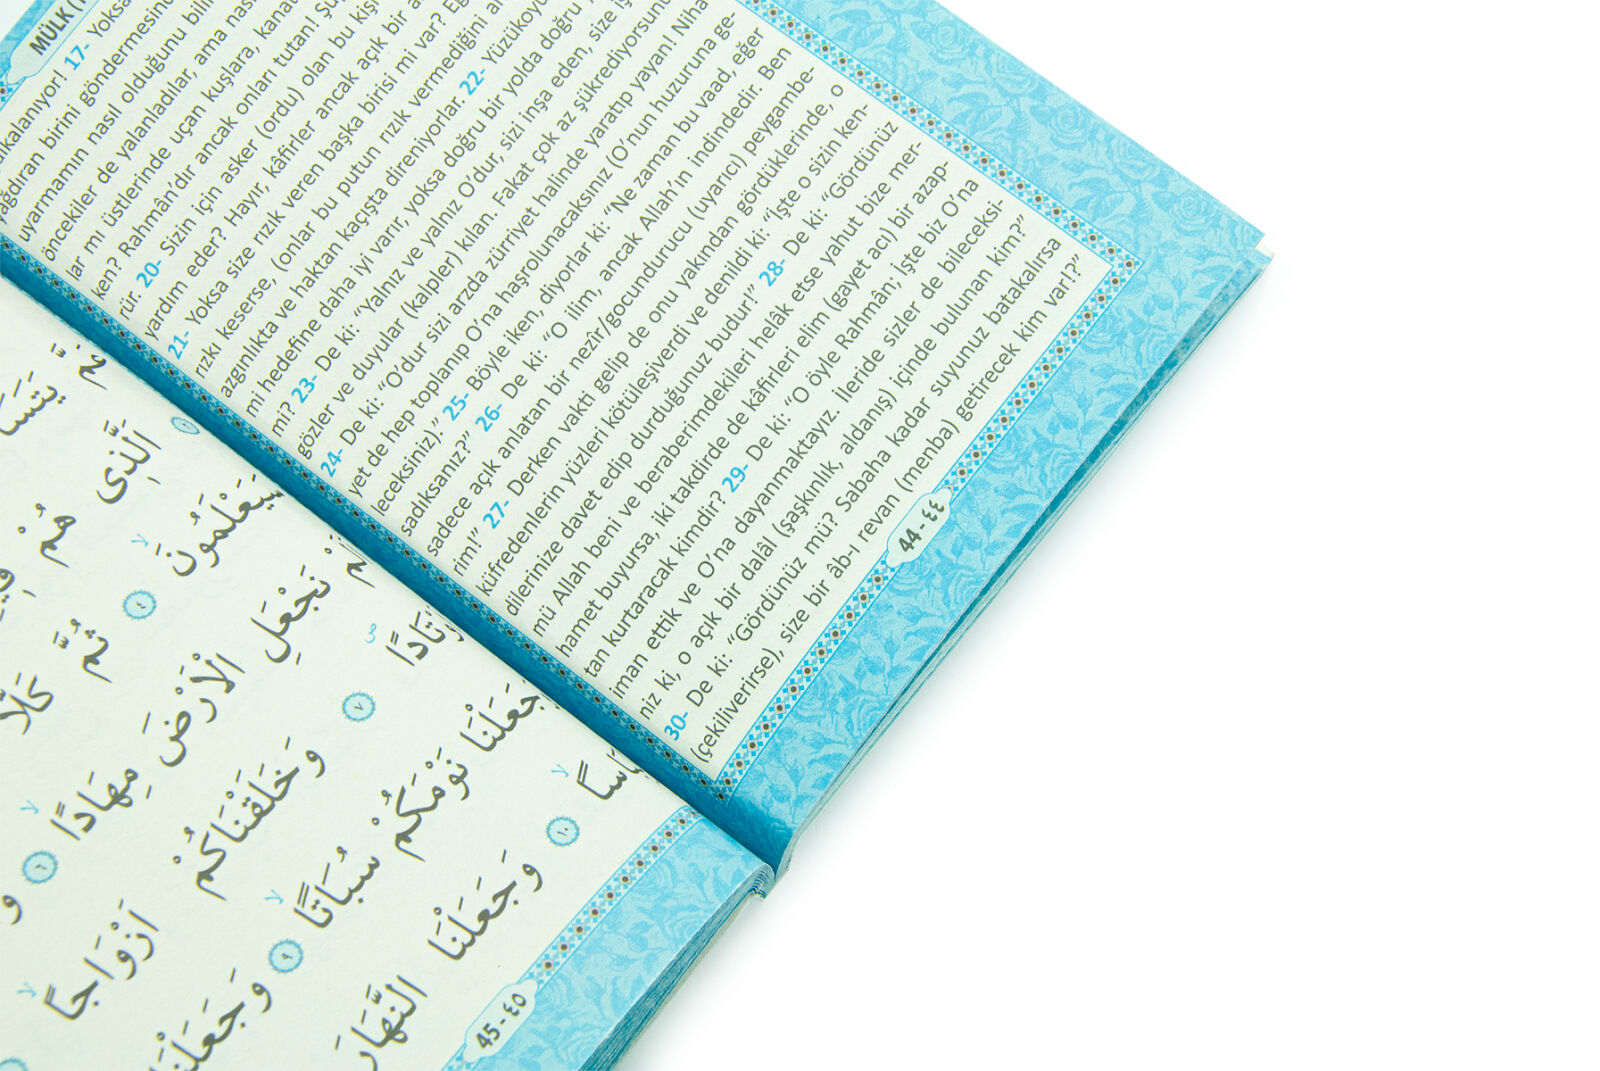 MÜLK (
17- Yoksa
yağdıran birini göndermesinden
uyarmamın nasıl olduğunu
öncekiler de yalanladılar, ama
mı üstlerinde uçan kuşlara,
ken? Rahmân’dır ancak onları tutan!
tür. 20- Sizin için asker (ordu) olan bu
yardım eder? Hayır, kâfirler ancak açık bir
21- Yoksa size rızık veren başka birisi mi var?
rızkı keserse, (onlar bu putun rızık vermediğini
azgınlıkta ve haktan kaçışta direniyorlar. 22-
mi hedefine daha iyi varır, yoksa doğru bir yolda doğru
mi? 23- De ki: “Yalnız ve yalnız O’dur, sizi inşa eden, size
gözler ve duyular (kalpler) kılan. Fakat çok az
24- De ki: “O’dur sizi arzda zürriyet halinde yaratıp yayan!
yet de hep toplanıp O’na haşrolunacaksınız (O’nun huzuruna ge-
leceksiniz).” 25- Böyle iken, diyorlar ki: “Ne zaman bu vaad, eğer
sadıksanız?” 26- De ki: “O ilim, ancak Allah’ın indindedir. Ben
sadece açık anlatan bir nezîr/gocundurucu (uyarıcı) peygambe-
rim!” 27- Derken vakti gelip de onu yakından gördüklerinde, o
küfredenlerin yüzleri kötüleşiverdi ve denildi ki: “İşte o sizin ken-
dilerinize davet edip durduğunuz budur!” 28- De ki: “Gördünüz
mü Allah beni ve beraberimdekileri helâk etse yahut bize mer-
hamet buyursa, iki takdirde de kâfirleri elim (gayet acı) bir azap-
tan kurtaracak kimdir? 29- De ki: “O öyle Rahmân; İşte biz O’na
iman ettik ve O’na dayanmaktayız. İleride sizler de bileceksi-
niz ki, o açık bir dalâl (şaşkınlık, aldanış) içinde bulunan kim?”
30- De ki: “Gördünüz mü? Sabaha kadar suyunuz batakalırsa
(çekiliverirse), size bir âb-ı revan (menba) getirecek kim var!?”
44 - ٤٤
عَمَّ
اَلَّذٖى هُمْ
سَيَعْلَمُونَ ٤ ثُمَّ كَلَّا
اَلَمْ نَجْعَلِ الْاَرْضَ مِهَادًا ٦
٧ وَخَلَقْنَاكُمْ اَزْوَاجًا
نَوْمَكُمْ سُبَاتًا ٩ وَجَعَلْنَا
١٠ وَجَعَلْنَا النَّهَارَ
45 - ٤٥